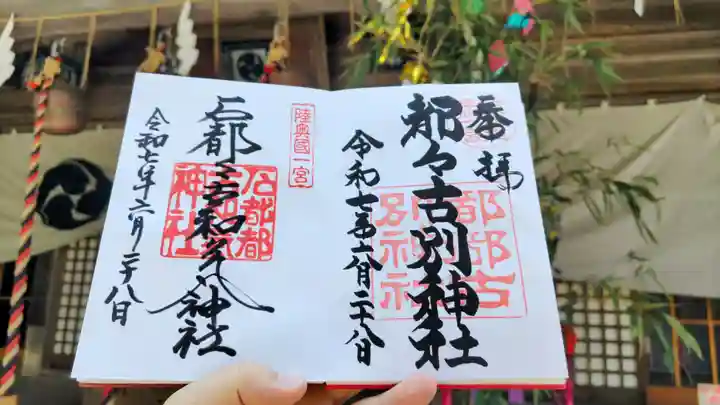 奉拝
都々古別神社
都都古別神社
令和七年六月二十八日
陸奥國一宮
石都々古和気神社
石都都古和気神社
令和七年六月二十八日